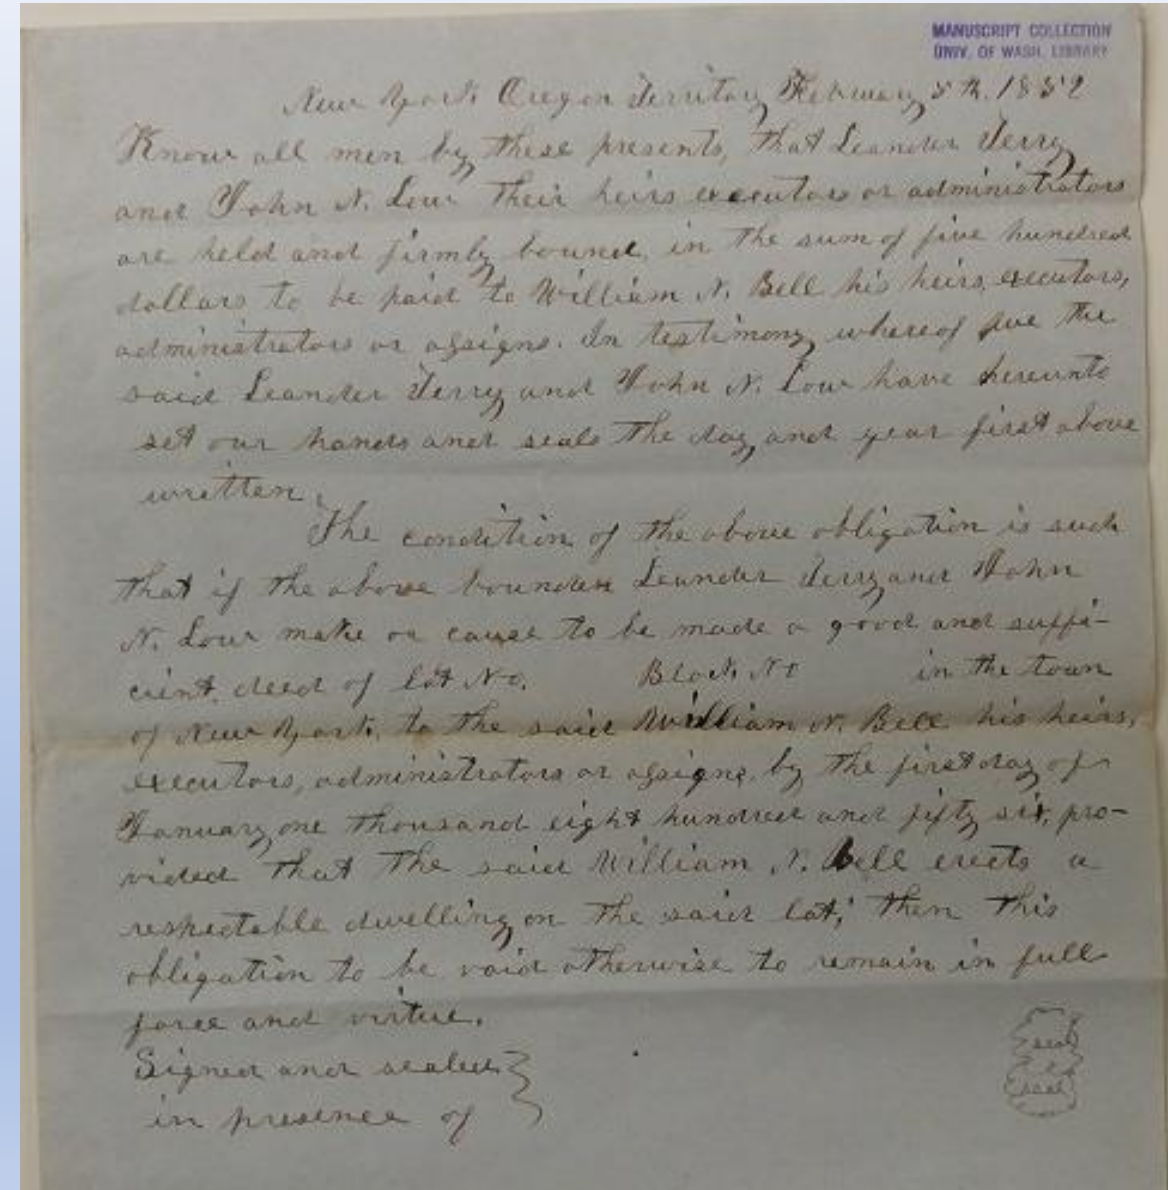 MANUSCRIPT COLLECTION
UNIV. OF WASH. LIBRARY
New York Oregon Territory February 5th. 1852
Know all men by these presents, that Leander Terry
and John N. Low their heirs executors or administrators
are held and firmly bound in the sum of five hundred
dollars to be paid to William N. Bell his heirs, executors,
administrators or assigns. In testimony whereof we the
said Leander Terry and John N. Low have hereunto
set our hands and seals the day and year first above
written.
The condition of the above obligation is such
that if the above bounden Leander Terry and John
N. Low make or cause to be made a good and suffi-
cient deed of lot No. Block No in the town
of New York, to the said William N. Bell his heirs,
executors, administrators or assigns, by the first day of
January one thousand eight hundred and fifty six, pro-
vided that the said William N. Bell erects a
respectable dwelling on the said lot; then this
obligation to be void otherwise to remain in full
force and virtue.
Signed and sealed
in presence of
Seal
Seal